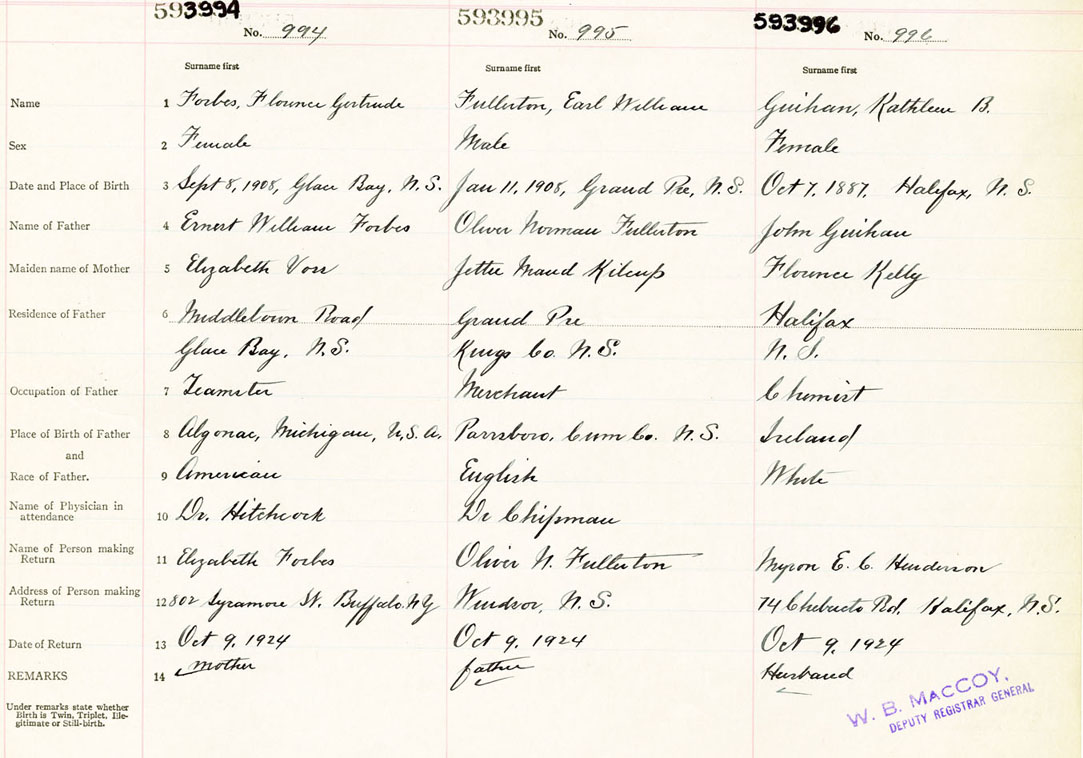 593994 593995 593996
No. 994 No. 995 No. 996
Surname first Surname first Surname first
Name 1 Forbes, Florence Gertrude Fullerton, Earl William Guihan, Kathleen B.
Sex 2 Female Male Female
Date and Place of Birth 3 Sept 8, 1908, Glace Bay, N.S. Jan 11, 1908, Grand Pre, N.S. Oct 7, 1887, Halifax, N.S.
Name of Father 4 Ernest William Forbes Oliver Norman Fullerton John Guihan
Maiden name of Mother 5 Elizabeth Voss Jettie Maud Kilcup Florence Kelly
Residence of Father 6 Middletown Road Grand Pre Halifax
Glace Bay, N.S. Kings Co. N.S. N.S.
Occupation of Father 7 Teamster Merchant Chemist
Place of Birth of Father 8 Algonac, Michigan, U.S.A. Parrsboro, Cum Co. N.S. Ireland
and
Race of Father. 9 American English White
Name of Physician in
attendance 10 Dr. Hitchcock Dr Chipman
Name of Person making
Return 11 Elizabeth Forbes Oliver N. Fullerton Myron E. C. Henderson
Address of Person making
Return 12 802 Sycamore St. Buffalo, N.Y Windsor, N.S. 74 Chebucto Rd. Halifax, N.S.
Date of Return 13 Oct 9, 1924 Oct 9, 1924 Oct 9, 1924
REMARKS 14 mother father Husband
Under remarks state whether
Birth is Twin, Triplet, Ille-
gitimate or Still-birth.
W. B. MACCOY,
DEPUTY REGISTRAR GENERAL